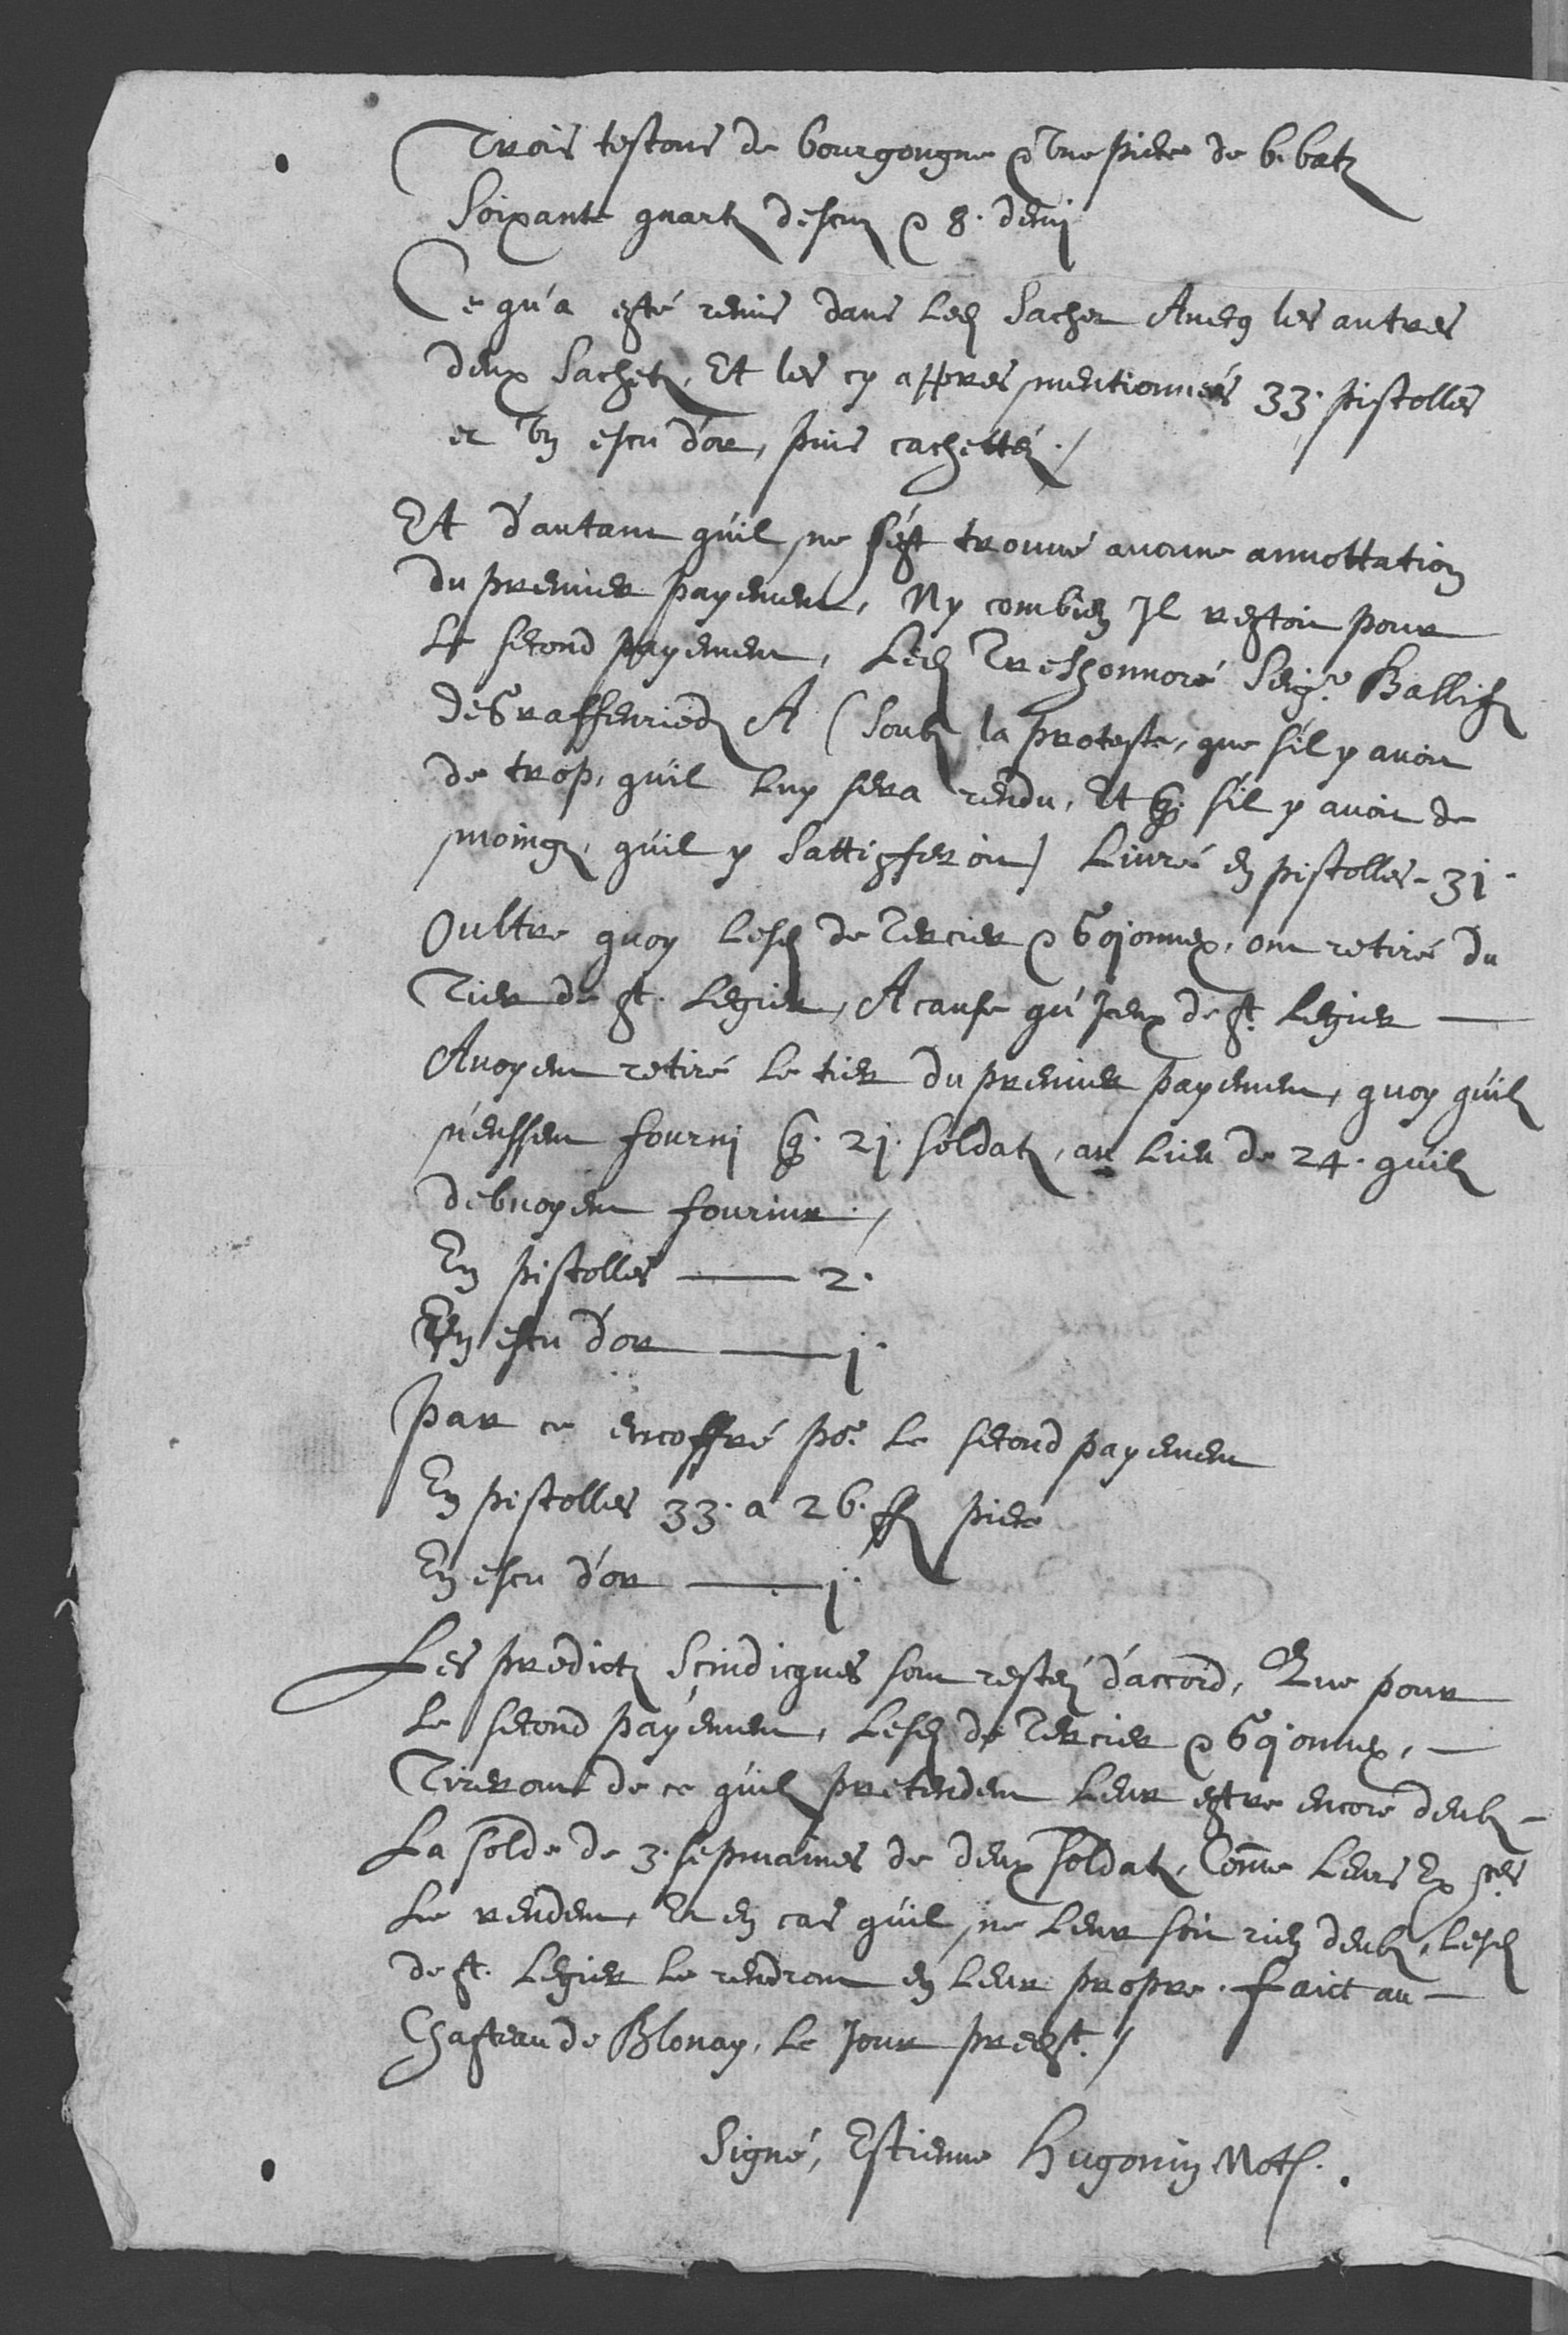 Trois testons de bourgongne & Une piece de 6. batz
Soixante quartz descuz & 8. demj
Ce qu'a esté remis dans Led Sachet Avecq les autres
deux Sachetz, Et les cy appres mentionnées 33. pistolles
et Un escu d'or, puis cachettéz./
Et d'autant qu'il ne s'est trouvé aucune annottation
du premier payement, Ny combien Il restoit pour
le second payement, Led Treshonnoré Seigr. Ballif
de Graffenried A (Soubz la proteste, que s'il y avoit
de trop, qu'il luy sera rendu, Et s'il y avoit de
moings, qu'il y Sattisferoit) Livré en pistolles - 31.
Oultre quoy Lesd de Tercier & Cojonnex, ont retiré du
Tier de St. Legier, A cause qu'Iceux de St. Legier —
Avoyent retiré le tier du premier payement, quoy qu'ilz
n'eussent fournj 21. soldatz, au lieu de 24. qu'ilz
debvoyent fournir./
En pistolles —— 2.
Un escu d'or —— j.
Par ce encoffré por. le second payement
En pistolles 33. a 26. ff piece
En escu d'or —— j.
Les predictz Scindicques sont restéz d'accord, Que pour
le second payement, Lesd de Tercier & Cojonnex, —
Tireront de ce qu'ilz pretendent Leur estre encore deubz -
La solde de 3. sepmaines de deux soldatz, Come Leurs Exces
Le rendent, Et en cas qu'il ne Leur soit rien deubz, Lesd
de St. Legier le rendront en Leur propre. faict au —
Chasteau de Blonay, le Jour predst./
Signé, Estienne Hugonin Not.